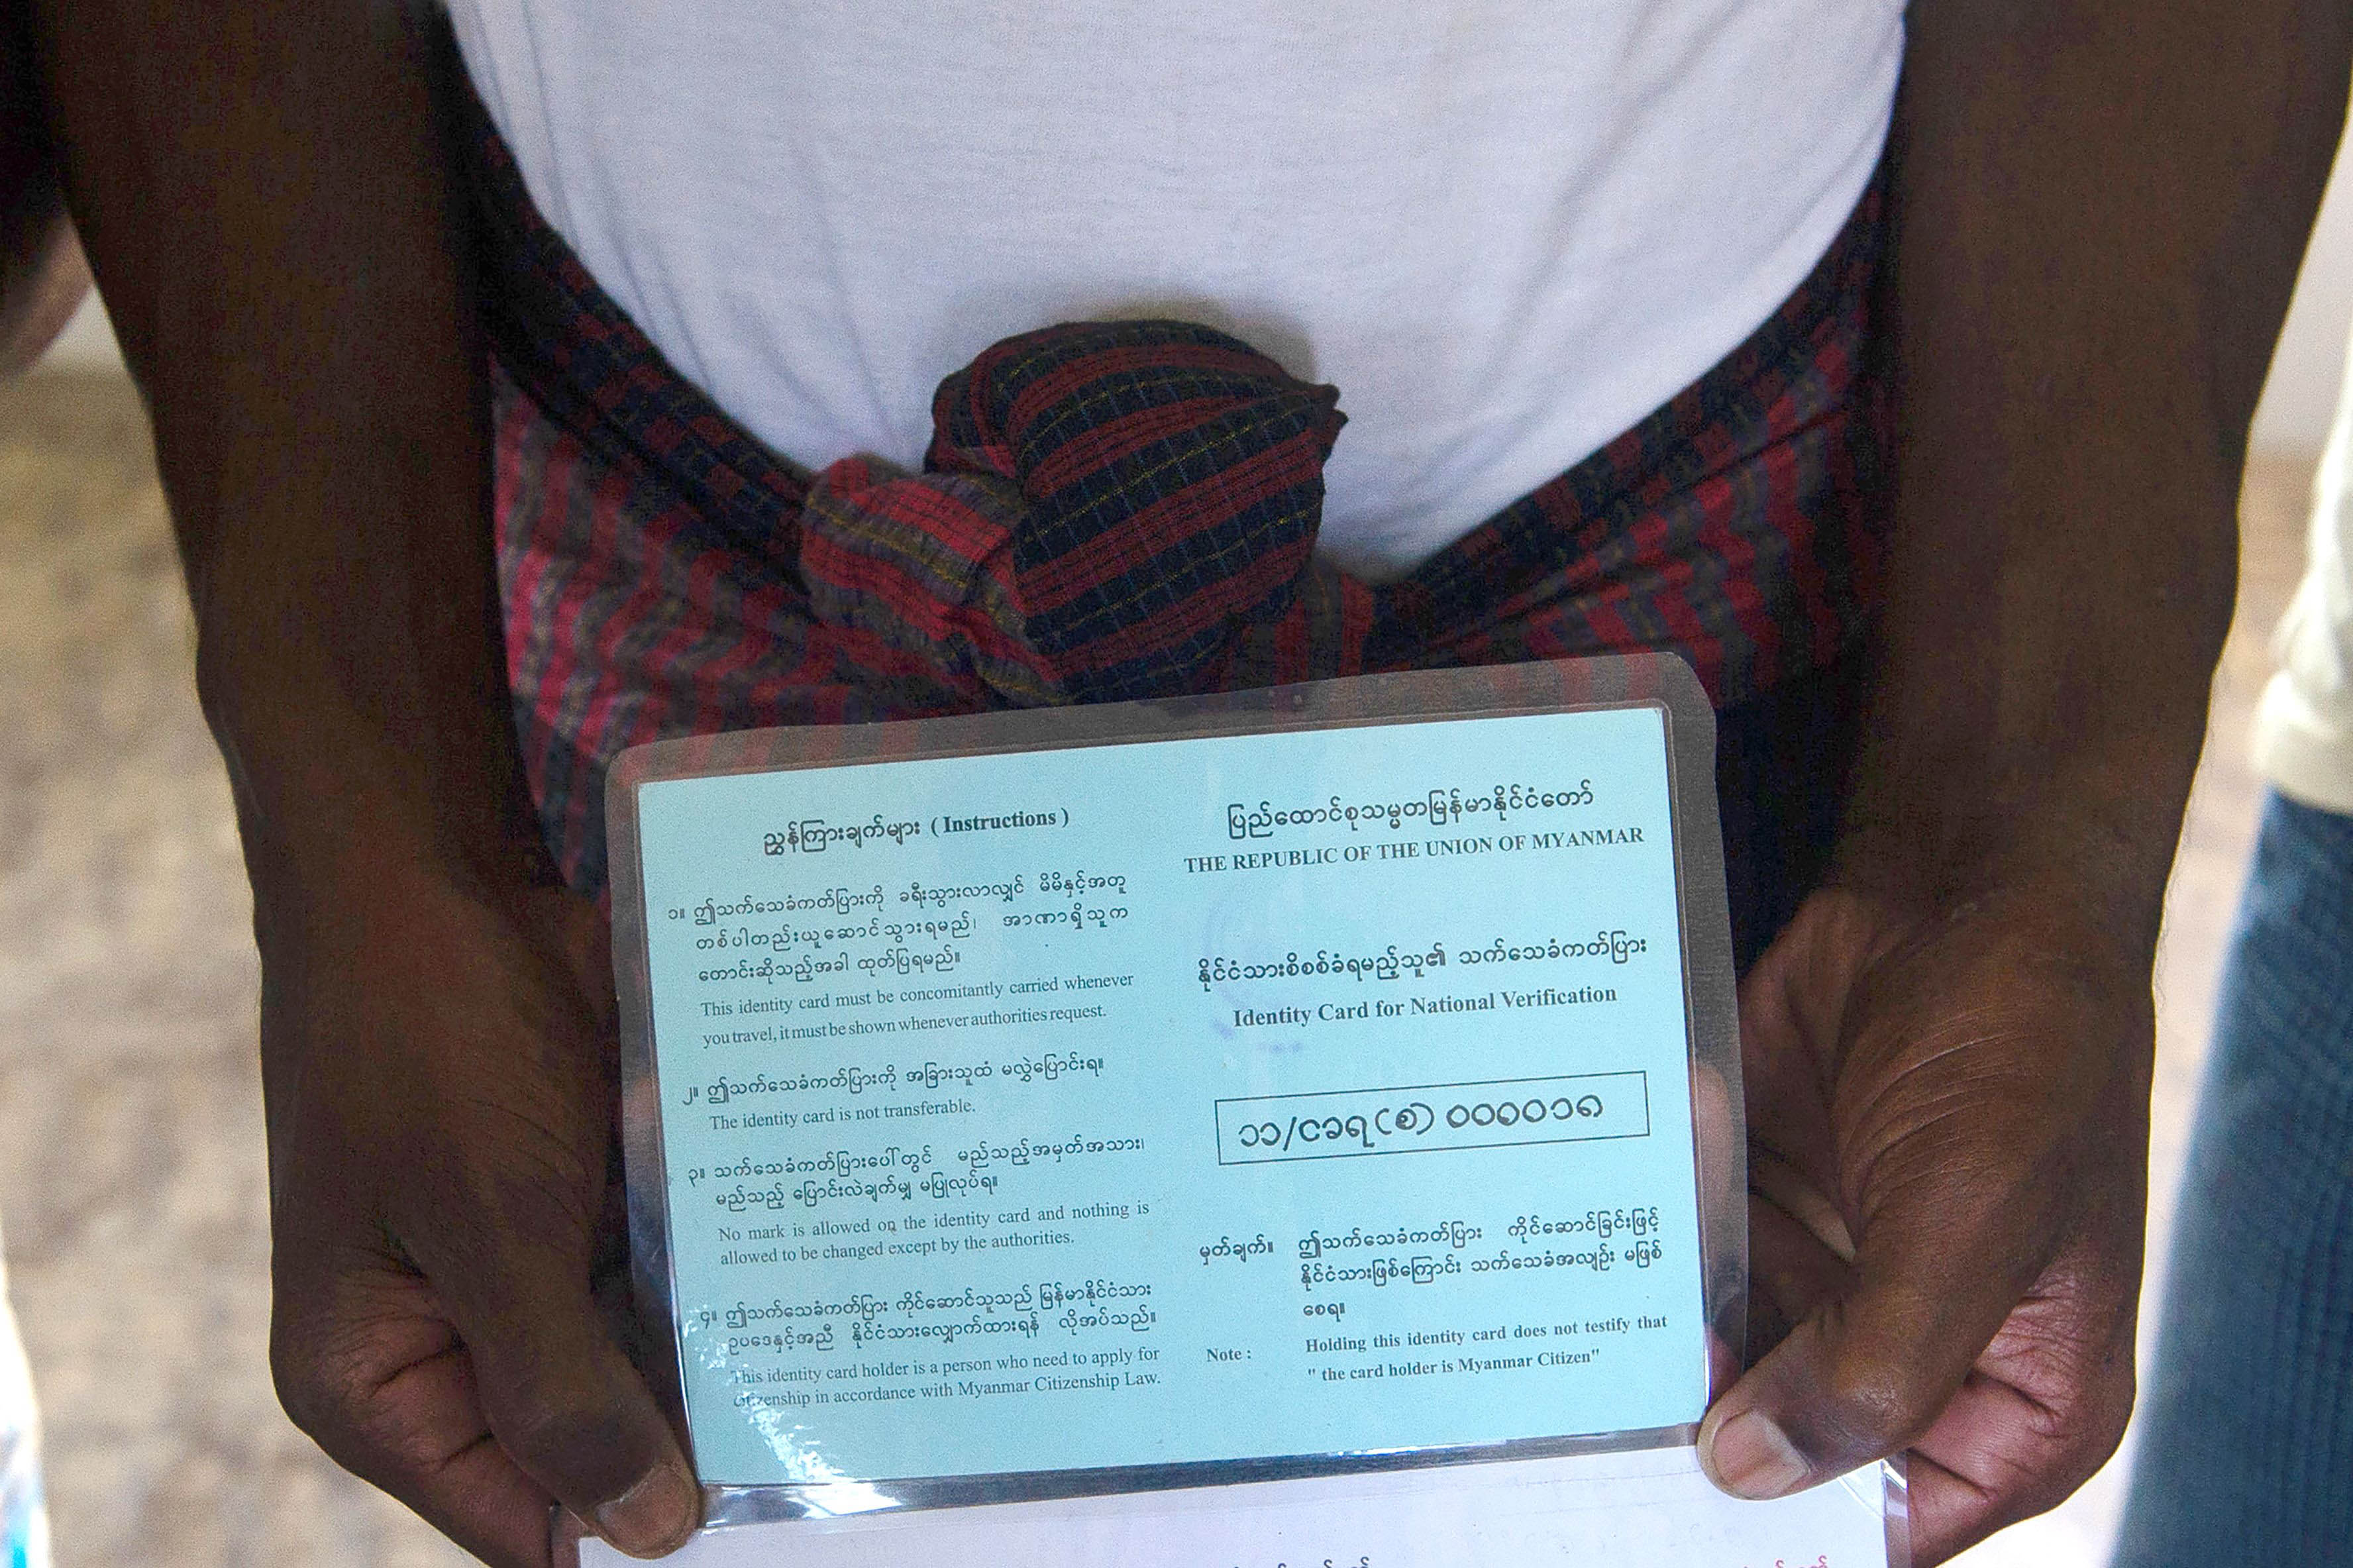 ညွှန်ကြားချက်များ ( Instructions )
၁။ ဤသက်သေခံကတ်ပြားကို ခရီးသွားလာလျှင် မိမိနှင့်အတူ
တစ်ပါတည်းယူဆောင်သွားရမည်၊ အာဏာရှိသူက
တောင်းဆိုသည့်အခါ ထုတ်ပြရမည်။
This identity card must be concomitantly carried whenever
you travel, it must be shown whenever authorities request.
၂။ ဤသက်သေခံကတ်ပြားကို အခြားသူထံ မလွှဲပြောင်းရ။
The identity card is not transferable.
၃။ သက်သေခံကတ်ပြားပေါ်တွင် မည်သည့်အမှတ်အသား၊
မည်သည့် ပြောင်းလဲချက်မျှ မပြုလုပ်ရ။
No mark is allowed on the identity card and nothing is
allowed to be changed except by the authorities.
၄။ ဤသက်သေခံကတ်ပြား ကိုင်ဆောင်သူသည် မြန်မာနိုင်ငံသား
ဥပဒေနှင့်အညီ နိုင်ငံသားလျှောက်ထားရန် လိုအပ်သည်။
This identity card holder is a person who need to apply for
citizenship in accordance with Myanmar Citizenship Law.
ပြည်ထောင်စုသမ္မတမြန်မာနိုင်ငံတော်
THE REPUBLIC OF THE UNION OF MYANMAR
နိုင်ငံသားစိစစ်ခံရမည့်သူ၏ သက်သေခံကတ်ပြား
Identity Card for National Verification
၁၁/ငခရ(စ)၀၀၀၀၁၈
မှတ်ချက်။ ဤသက်သေခံကတ်ပြား ကိုင်ဆောင်ခြင်းဖြင့်
နိုင်ငံသားဖြစ်ကြောင်း သက်သေခံအလျဉ်း မဖြစ်
စေရ။
Note : Holding this identity card does not testify that
" the card holder is Myanmar Citizen"